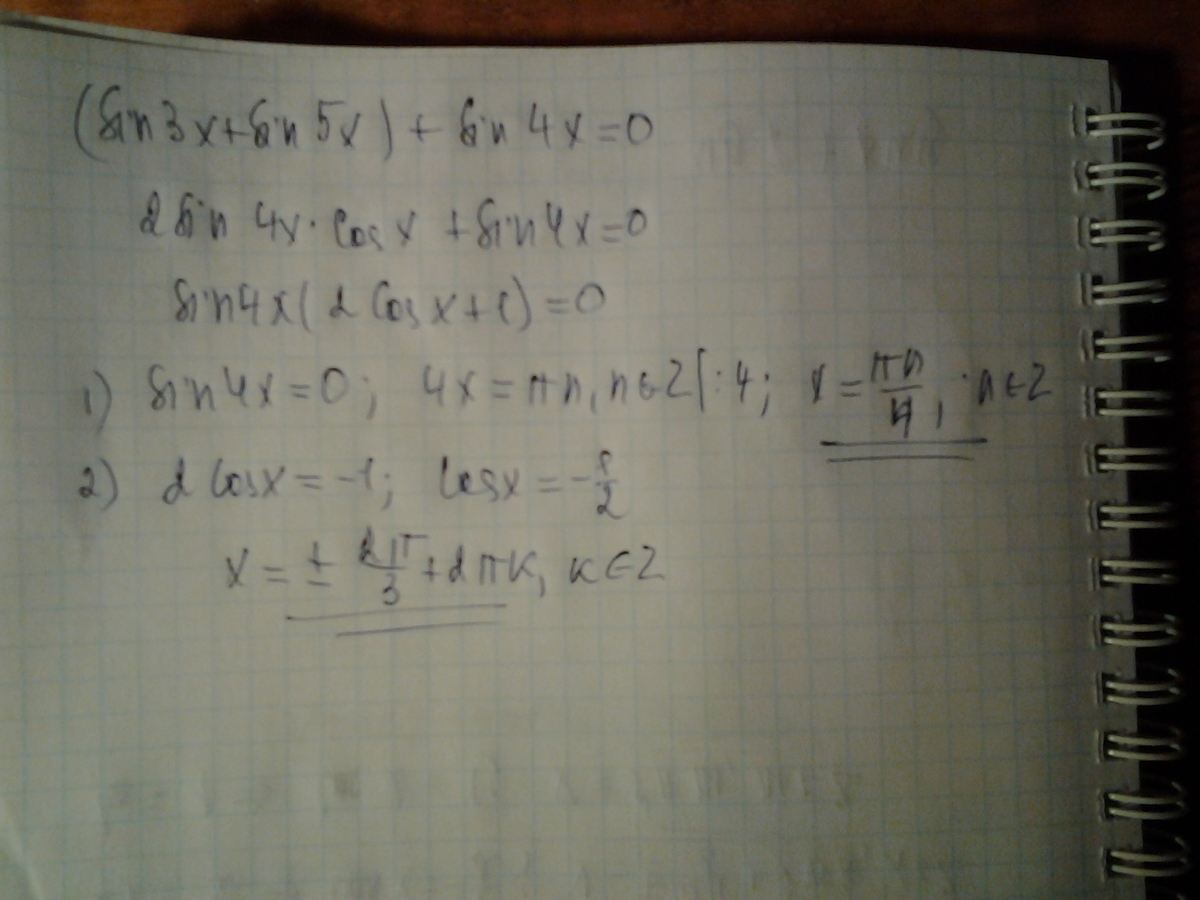 (Sin 3x + Sin 5x) + Sin 4x = 0
2 Sin 4x · Cos x + Sin 4x = 0
Sin 4x (2 Cos x + 1) = 0
1) Sin 4x = 0; 4x = πn, n ∈ Z | : 4; x = πn/4, n ∈ Z
2) 2 Cos x = -1; Cos x = -1/2
x = ± 2π/3 + 2πk, k ∈ Z